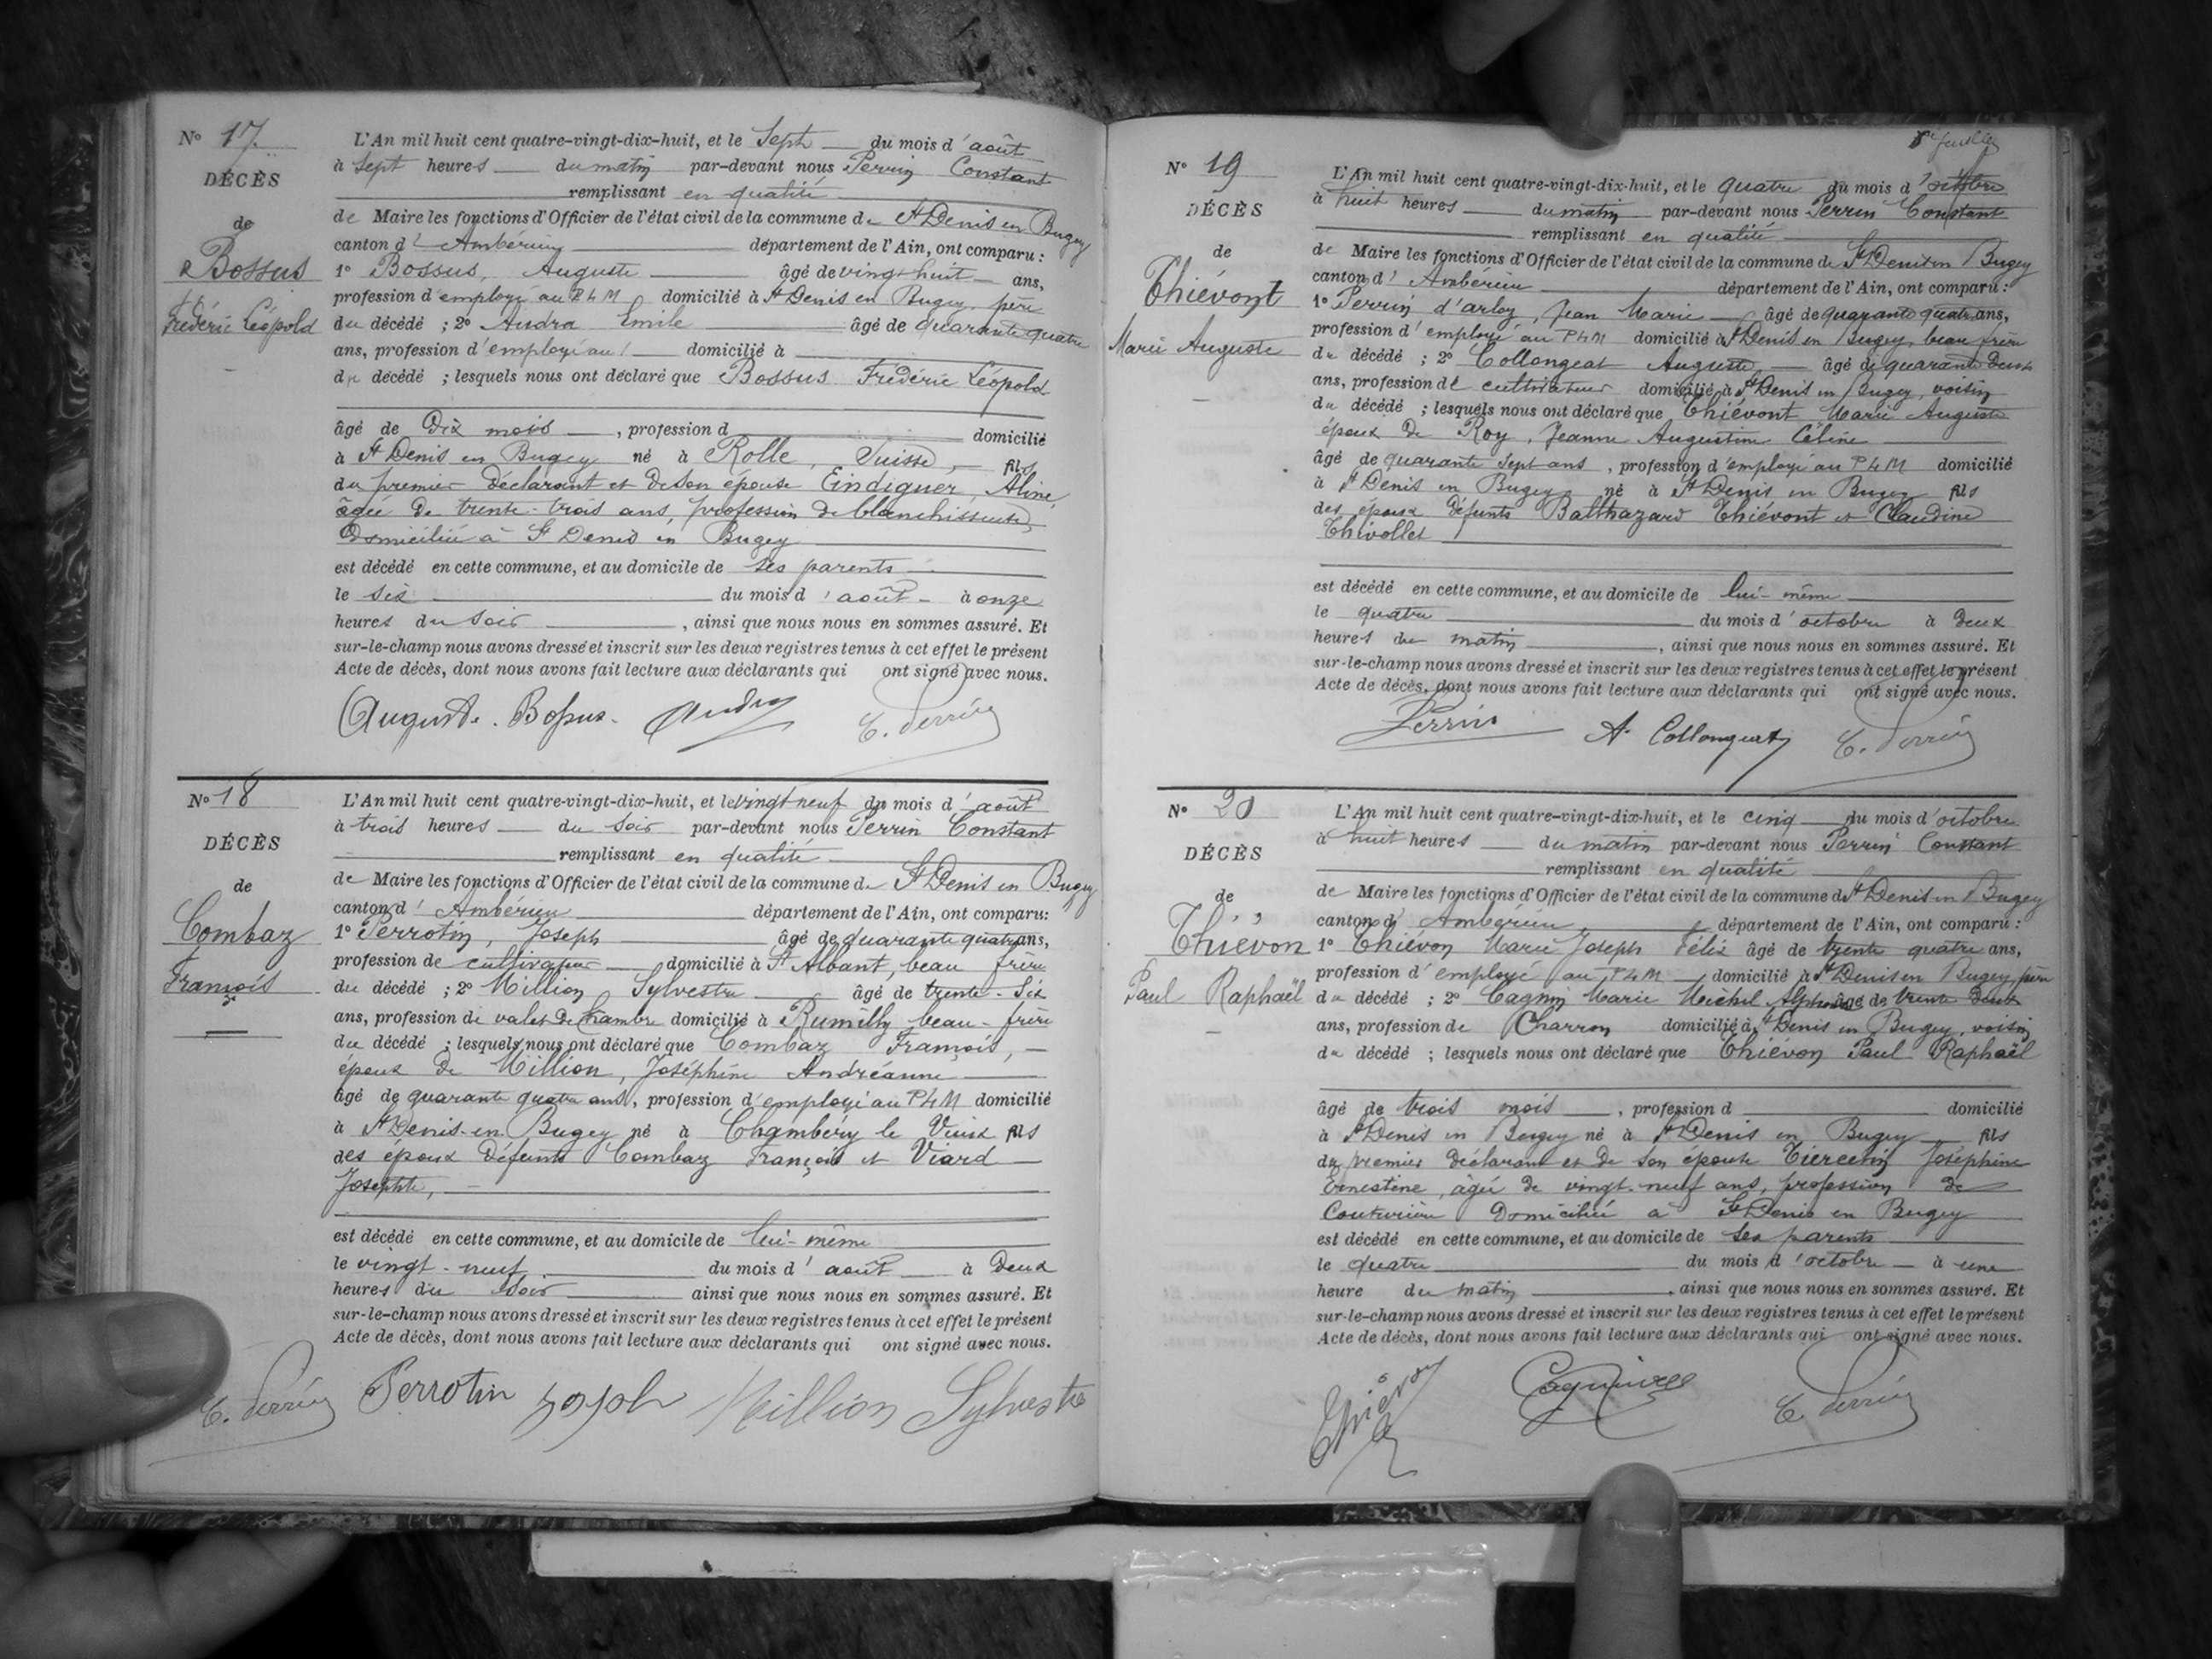 N° 17
DÉCÈS
de
Bossus
Frédéric Léopold
L'An mil huit cent quatre-vingt-dix-huit, et le Sept du mois d'août
à Sept heures du matin par-devant nous Perrin Constant
remplissant en qualité
de Maire les fonctions d'Officier de l'état civil de la commune de St Denis en Bugey
canton d'Ambérieu département de l'Ain, ont comparu :
1° Bossus, Auguste âgé de vingt huit ans,
profession d'employé au PLM domicilié à St Denis en Bugey, père
du décédé ; 2° Andra Emile âgé de quarante quatre
ans, profession d'employé au domicilié à
du décédé ; lesquels nous ont déclaré que Bossus Frédéric Léopold
âgé de Dix mois, profession d domicilié
à St Denis en Bugey né à Rolle, Suisse, fils
du premier déclarant et de son épouse Eindiguer, Aline,
âgée de trente-trois ans, profession de blanchisseuse,
Domiciliée à St Denis en Bugey
est décédé en cette commune, et au domicile de ses parents
le six du mois d'août à onze
heures du soir, ainsi que nous nous en sommes assuré. Et
sur-le-champ nous avons dressé et inscrit sur les deux registres tenus à cet effet le présent
Acte de décès, dont nous avons fait lecture aux déclarants qui ont signé avec nous.
Auguste. Bossus. Andra C. Perrin
N° 18
DÉCÈS
de
Combaz
François
L'An mil huit cent quatre-vingt-dix-huit, et le vingt neuf du mois d'août
à trois heures du soir par-devant nous Perrin Constant
remplissant en qualité
de Maire les fonctions d'Officier de l'état civil de la commune de St Denis en Bugey
canton d'Ambérieu département de l'Ain, ont comparu:
1° Perrotin, Joseph âgé de quarante quatre ans,
profession de cultivateur domicilié à St Albant, beau frère
du décédé ; 2° Million Sylvestre âgé de trente-six
ans, profession de valet de chambre domicilié à Rumilly beau-frère
du décédé ; lesquels nous ont déclaré que Combaz François,
époux de Million, Joséphine Andréanne
âgé de quarante quatre ans, profession d'employé au PLM domicilié
à St Denis-en-Bugey né à Chambéry le Vieux fils
des époux défunts Combaz François et Viard
Josephte,
est décédé en cette commune, et au domicile de lui-même
le vingt-neuf du mois d'août à deux
heures du soir ainsi que nous nous en sommes assuré. Et
sur-le-champ nous avons dressé et inscrit sur les deux registres tenus à cet effet le présent
Acte de décès, dont nous avons fait lecture aux déclarants qui ont signé avec nous.
C. Perrin Perrotin Joseph Million Sylvestre
feuillet
N° 19
DÉCÈS
de
Thiévont
Marie Auguste
L'An mil huit cent quatre-vingt-dix-huit, et le quatre du mois d'octobre
à huit heures du matin par-devant nous Perrin Constant
remplissant en qualité
de Maire les fonctions d'Officier de l'état civil de la commune de St Denis en Bugey
canton d'Ambérieu département de l'Ain, ont comparu :
1° Perrin d'arloz, Jean Marie âgé de quarante quatre ans,
profession d'employé au PLM domicilié à St Denis en Bugey, beau frère
du décédé ; 2° Collongeat Auguste, âgé de quarante deux
ans, profession de cultivateur domicilié à St Denis en Bugey, voisin
du décédé ; lesquels nous ont déclaré que Thiévont Marie Auguste
époux de Roy, Jeanne Augustine Céline
âgé de quarante sept ans, profession d'employé au PLM domicilié
à St Denis en Bugey né à St Denis en Bugey fils
des époux défunts Balthazard Thiévont et Claudine
Thivollet
est décédé en cette commune, et au domicile de lui-même
le quatre du mois d'octobre à deux
heures du matin, ainsi que nous nous en sommes assuré. Et
sur-le-champ nous avons dressé et inscrit sur les deux registres tenus à cet effet le présent
Acte de décès, dont nous avons fait lecture aux déclarants qui ont signé avec nous.
Perrin A. Collongeat C. Perrin
N° 20
DÉCÈS
de
Thiévon
Paul Raphaël
L'An mil huit cent quatre-vingt-dix-huit, et le cinq du mois d'octobre
à huit heures du matin par-devant nous Perrin Constant
remplissant en qualité
de Maire les fonctions d'Officier de l'état civil de la commune de St Denis en Bugey
canton d'Ambérieu département de l'Ain, ont comparu :
1° Thiévon Marie Joseph Félix âgé de trente quatre ans,
profession d'employé au PLM domicilié à St Denis en Bugey, père
du décédé ; 2° Cagnin Marie Michel Alphonse âgé de trente deux
ans, profession de Charron domicilié à St Denis en Bugey, voisin
du décédé ; lesquels nous ont déclaré que Thiévon Paul Raphaël
âgé de trois mois, profession d domicilié
à St Denis en Bugey né à St Denis en Bugey fils
du premier déclarant et de son épouse Tiercetin Joséphine
Ernestine, agée de vingt-neuf ans, profession de
Couturière Domiciliée à St Denis en Bugey
est décédé en cette commune, et au domicile de ses parents
le quatre du mois d'octobre à une
heure du matin, ainsi que nous nous en sommes assuré. Et
sur-le-champ nous avons dressé et inscrit sur les deux registres tenus à cet effet le présent
Acte de décès, dont nous avons fait lecture aux déclarants qui ont signé avec nous.
Thiévon C. Perrin